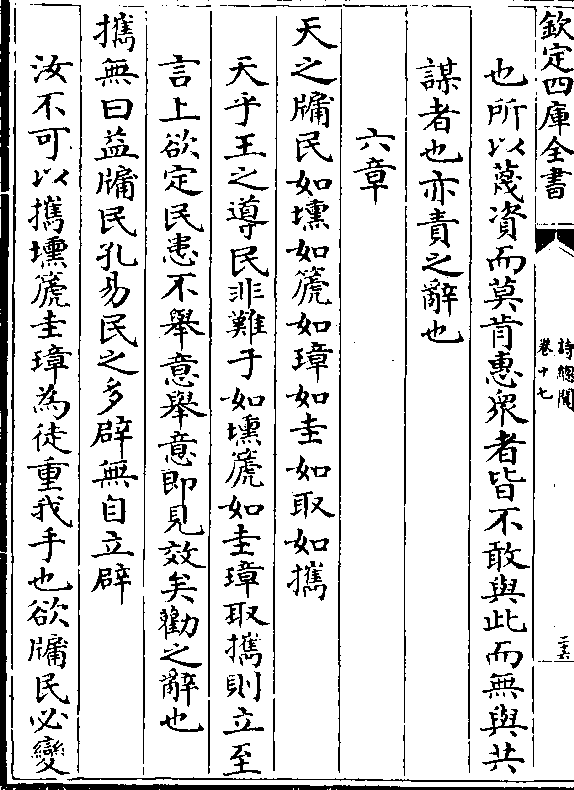 欽定四庫全書
詩總聞
卷十七
二六
也所以蔑資而莫肯惠衆者皆不敢與此而無與共
謀者也亦責之辭也
六章
天之牖民如壎如篪如璋如圭如取如攜
天乎王之導民非難于如壎篪如圭璋取攜則立至
言上欲定民患不舉意舉意即見效矣勸之辭也
攜無曰益牖民孔易民之多辟無自立辟
汝不可以攜壎篪圭璋為徒重我手也欲牖民必變